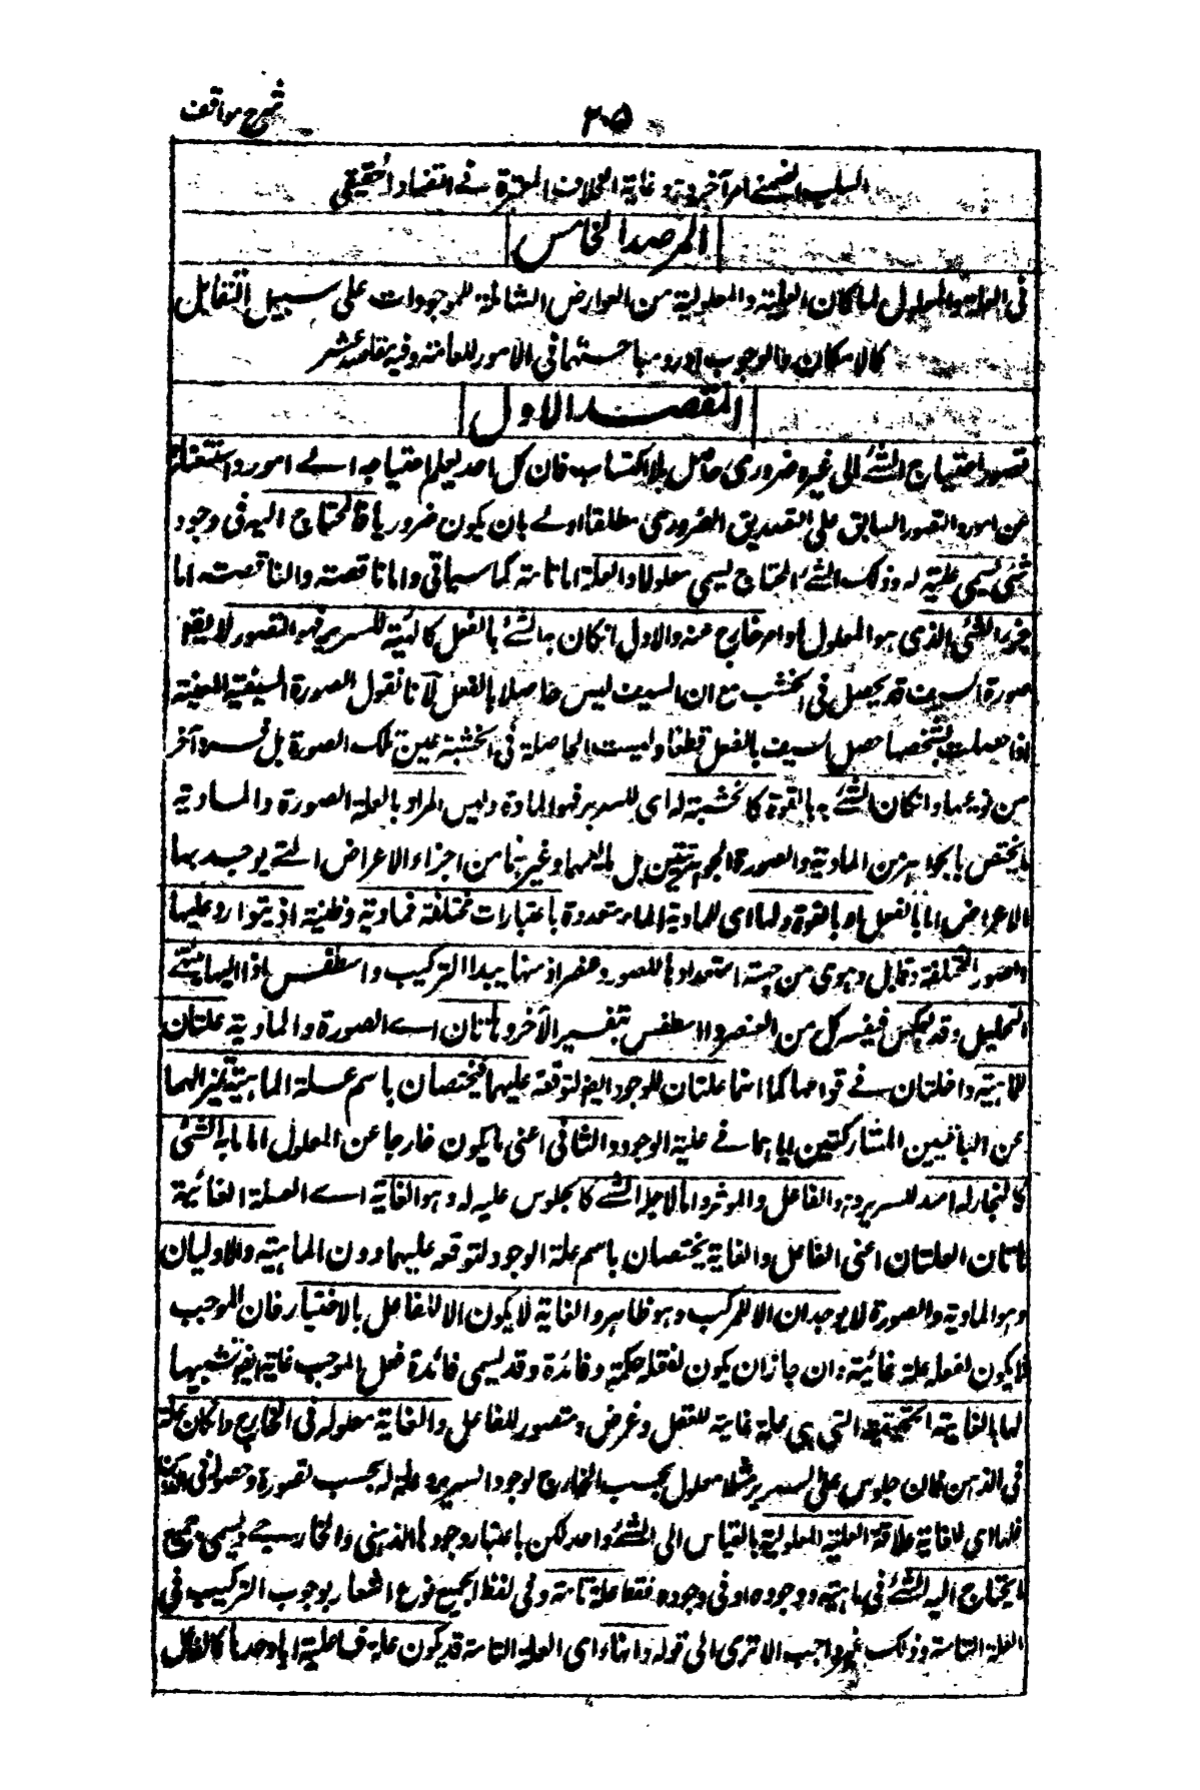 شرح مواقف
٢٠٥
السلب الضمني امر آخر وغاية الخلاف المعتبرة في التضاد الحقيقي
المرصد الخامس
في العلة والمعلول لما كان العلية والمعلولية من العوارض الشاملة للموجودات على سبيل التقابل
كالامكان والوجوب اورد مباحثهما في الامور العامة وفيه مقاصد عشر
المقصد الاول
تصور احتياج الشئ الى غيره ضروري حاصل بلا اكتساب فان كل احد يعلم احتياجه الى امور واستغناءه
عن امور والتصور السابق على التصديق الضروري مطلقا اولى بان يكون ضروريا فالمحتاج اليه في وجود
شئ يسمى علة له وذلك الشئ المحتاج يسمى معلولا والعلة اما تامة كما سياتي واما ناقصة والناقصة اما
جزء الشئ الذي هو المعلول او امر خارج عنه والاول ان كان به الشئ بالفعل كالهيئة للسرير فهو الصورة لا يقال
صورة السيف قد يحصل في الخشب مع ان السيف ليس حاصلا بالفعل لانا نقول الصورة السيفية المعينة
اذا حصلت بشخصها حصل السيف بالفعل قطعا وليست الحاصلة في الخشبة عين تلك الصورة بل فرد آخر
من نوعها وان كان الشئ به بالقوة كالخشبة له اي للسرير فهو المادة وليس المراد بالعلة الصورة والمادية
ما يختص بالجواهر من المادية والصورة الجوهريتين بل ما يعمهما وغيرهما من اجزاء الاعراض التي يوجد بها
الاعراض اما بالفعل او بالقوة ولها اي للمادية اسماء متعددة باعتبارات مختلفة فمادية وطينة اذ يتوارد عليها
الصور المختلفة وقابل وهيولى من جهة استعدادها للصور وعنصر اذ منها يبدا التركيب واسطقس اذ اليها ينتهي
التحليل وقد يعكس فيفسر كل من العنصر والاسطقس بتفسير الآخر وهاتان اي الصورة والمادية علتان
للماهية داخلتان في قوامها كما انهما علتان للوجود ايضا لتوقفه عليهما فيختصان باسم علة الماهية تميزا لهما
عن الباقيين المشاركتين اياهما في علية الوجود والثاني اعني ما يكون خارجا عن المعلول اما ما به الشئ
كالنجار له اي للسرير وهو الفاعل والموثر واما لاجله الشئ كالجلوس عليه له وهو الغاية اي العلة الغائية
هاتان العلتان اعني الفاعل والغاية يختصان باسم علة الوجود لتوقفه عليهما دون الماهية والاوليان
وهو المادية والصورة لا يوجدان الا للمركب وهو ظاهر والغاية لا يكون الا للفاعل بالاختيار فان الموجب
لا يكون لفعله علة غائية وان جاز ان يكون لفعله حكمة وفائدة وقد يسمى فائدة فعل الموجب غاية ايضا تشبيها
لها بالغاية الحقيقية التي هي علة غاية للفعل وغرض مقصور للفاعل والغاية معلولة في الخارج وان كان علة
في الذهن فان جلوس على السرير مثلا معلول بحسب الخارج لوجود السرير وعلة له بحسب تصوره وحصوله في الذهن
فلها اي للغاية علاقة العلية المعلولية بالقياس الى الشئ واحد لكن باعتبار وجودها الذهني والخارجي ويسمى جميع
ما يحتاج اليه الشئ في ماهيته ووجوده او في وجوده فقط علة تامة وفي لفظ الجميع نوع اشعار بوجوب التركيب في
العلة التامة وذلك غير واجب الا ترى الى قوله وانها اي العلة التامة قد يكون علة فاعلية اما وحدها كالفاعل